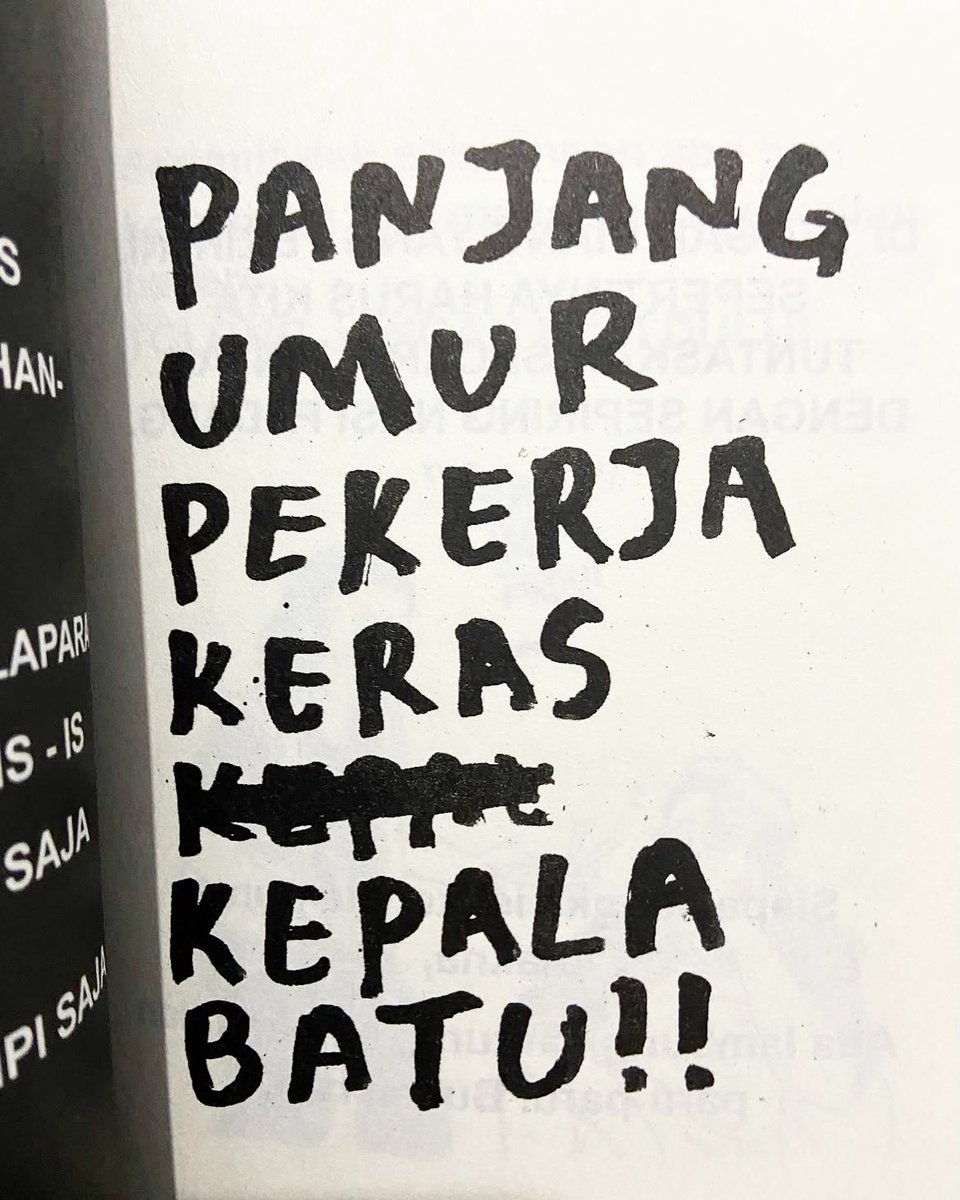 S
HAN-
LAPARA
IS - IS
SAJA
IPI SAJA
PANJANG
UMUR
PEKERJA
KERAS
KEPALA
BATU!!